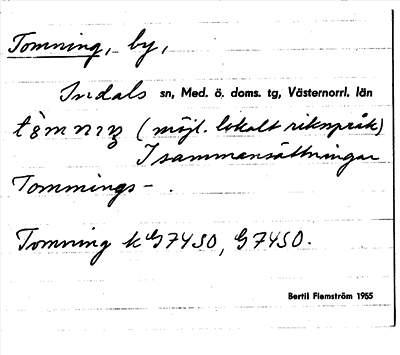 Tomning, by,
Indals sn, Med. ö. doms. tg, Västernorrl. län
(möjl. lokalt rikspråk)
I sammansättningar
Tommings- .
Tomning k G7450, G7450.
Bertil Flemström 1955